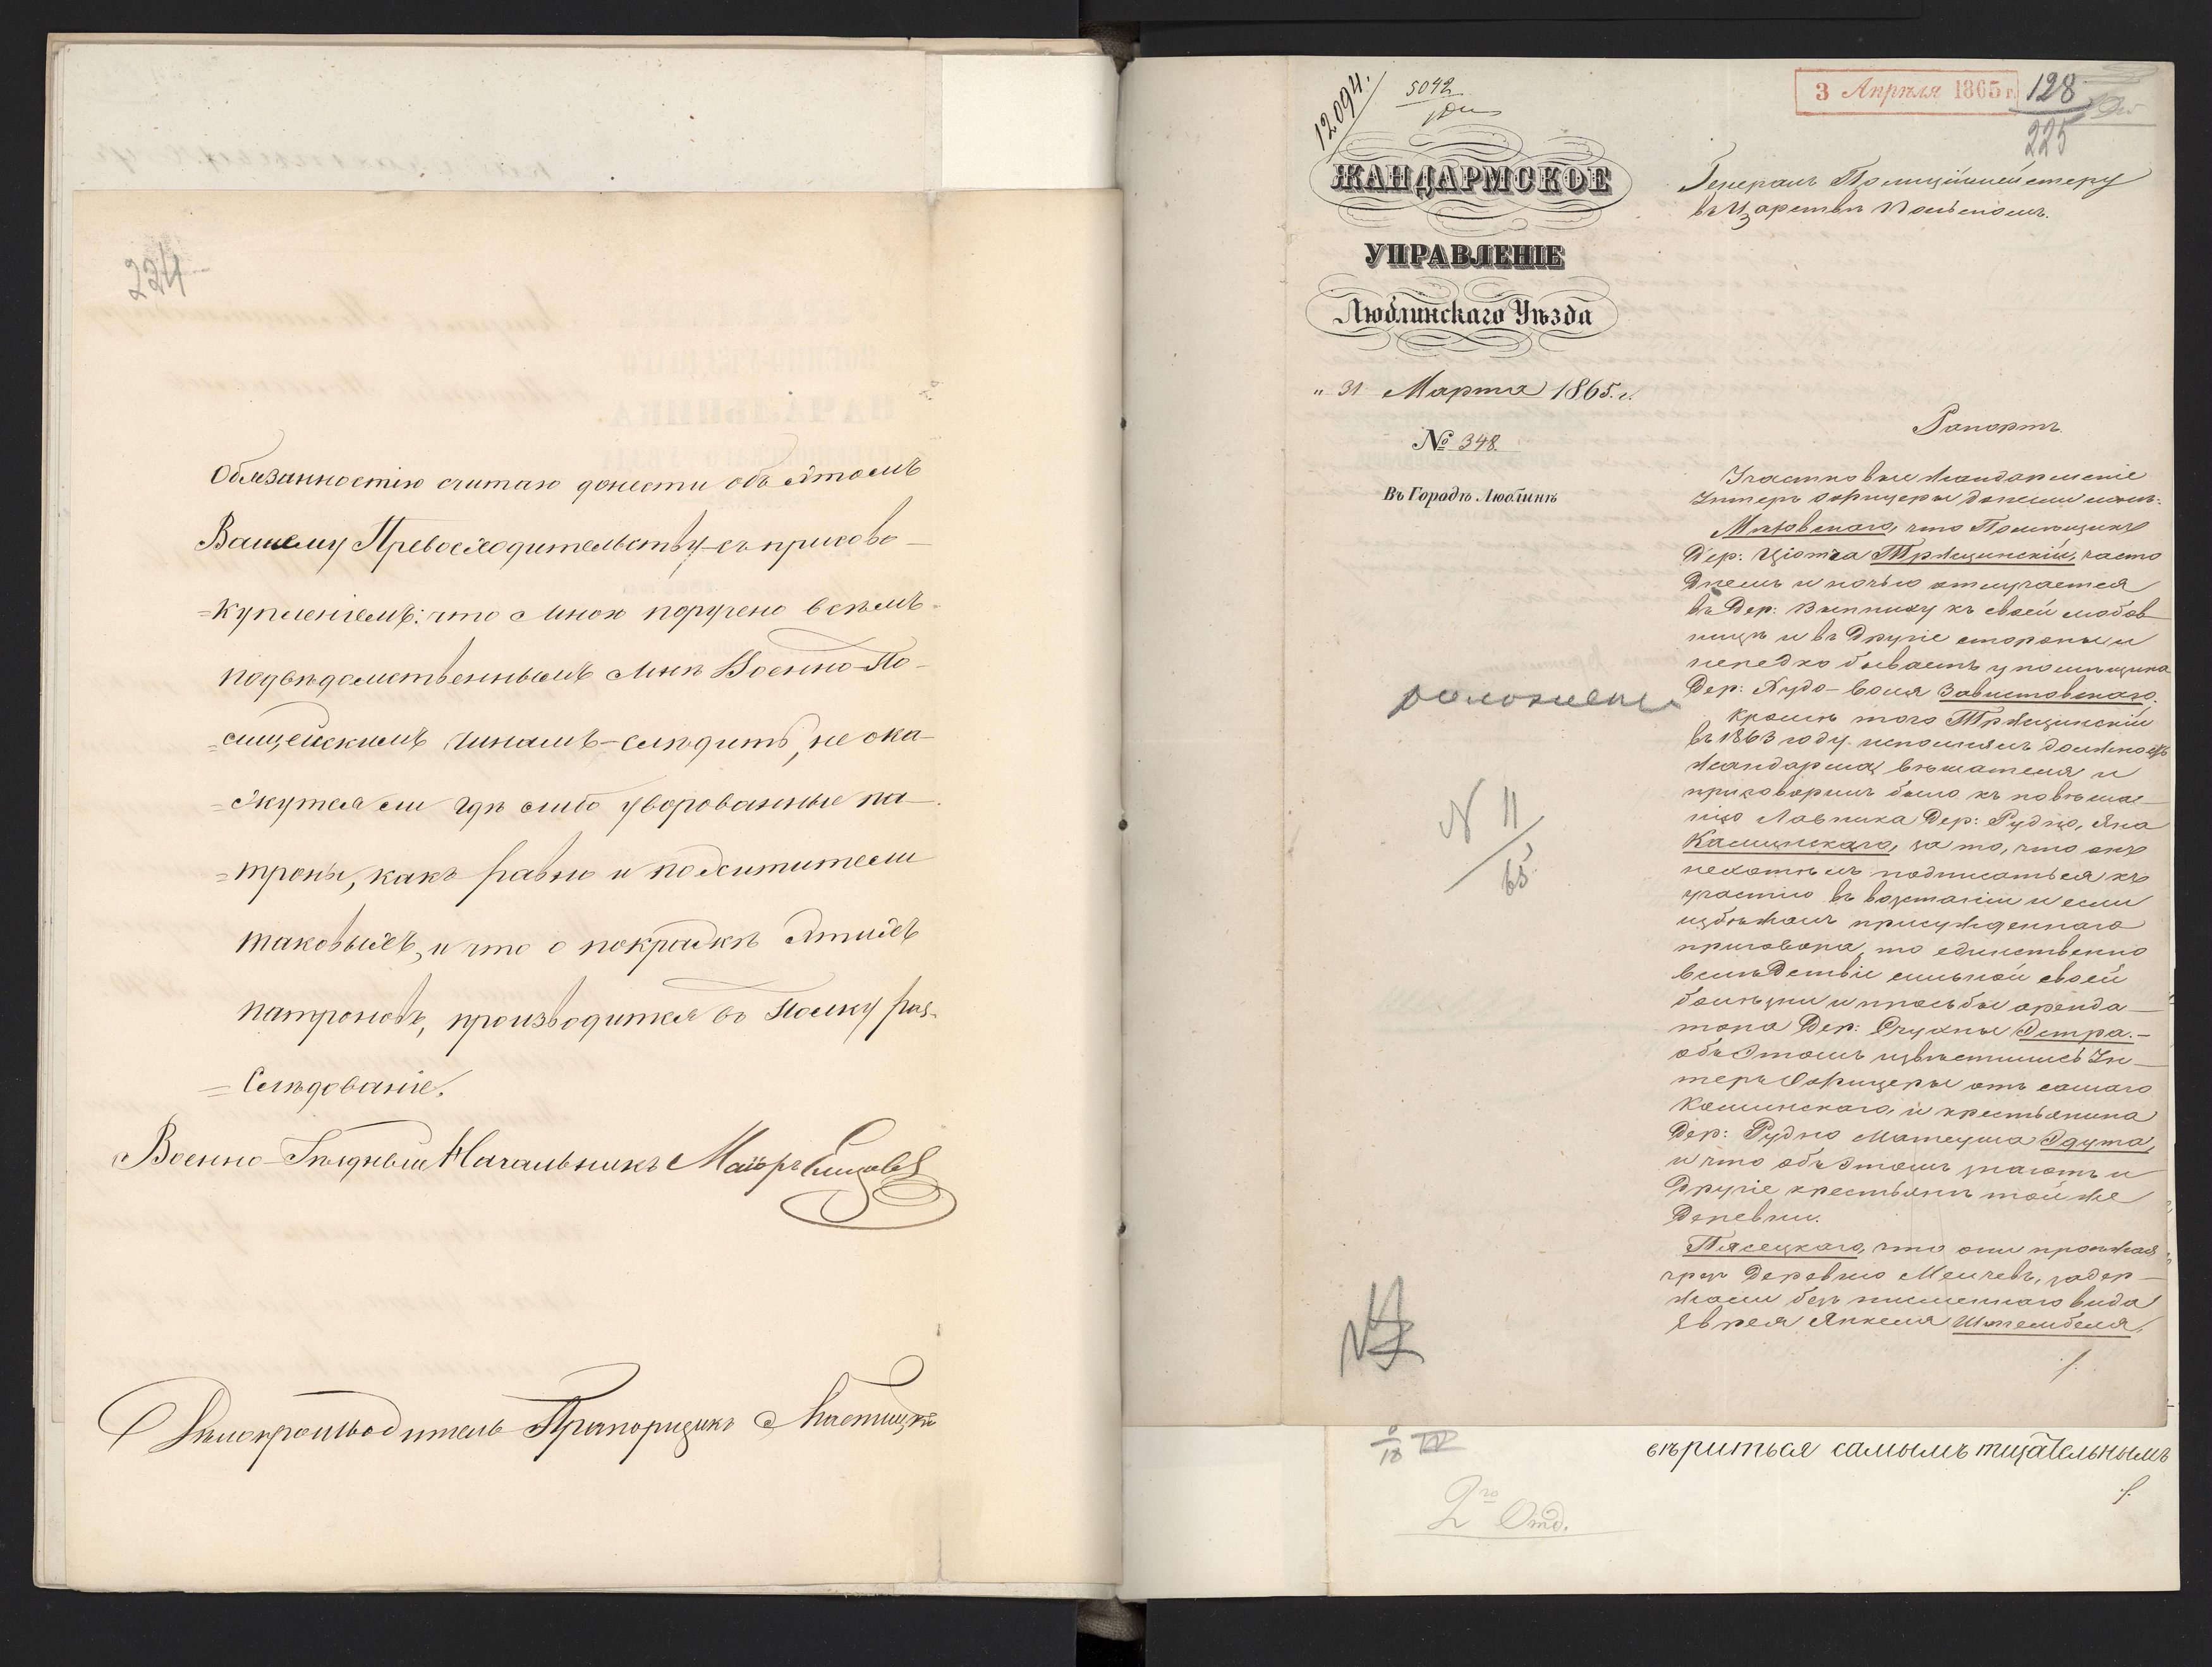 224
Обязанностію считаю донести объ этомъ
Вашему Превосходительству съ присово-
=купленіемъ: что мною поручено всѣмъ
подвѣдомственнымъ мнѣ Военно-По-
=лицейскимъ чинамъ-слѣдить, не ока-
=жутся ли гдѣ либо уворованные па-
=троны, какъ равно и похитители
таковыхъ, и что о покражѣ этихъ
патроновъ, производится въ Полку раз-
=слѣдованіе.
Военно-Уѣздный Начальникъ Маіоръ
Дѣлопроизводитель Прапорщикъ
12094.
5042
3 Апрѣля 1865 г.
128
225
ЖАНДАРМСКОЕ
УПРАВЛЕНІЕ
Люблинскаго Уѣзда
"31 Марта 1865. г.
№ 348.
Въ Городѣ Люблинѣ
Генералъ Полиціймейстеру
въ Царствѣ Польскомъ.
Рапортъ
Участковые Жандармскіе
Унтеръ офицеры донесли мнѣ:
что Помѣщикъ
Дер: Тржцинскій, часто
днемъ и ночью отлучается
въ Дер: къ своей любов
ницѣ и въ другіе стороны и
нередко бываетъ у помѣщика
Дер: воля Завистовскаго.
Кромѣ того Тржцинскій
въ 1863 году исполнялъ должность
жандарма вѣшателя и
приговорилъ было къ повѣша-
нію Лавника Дер: Рудно, Яна
Каминскаго, за то, что онъ
нехотѣлъ подписаться къ
участію въ возстаніи и если
избѣжалъ присужденнаго
приговора, то единственно
вслѣдствіе сильной своей
болѣзни и просьбы аренда-
тора Дер:
объ этомъ извѣстились Ун-
теръ Офицеры отъ самаго
Каминскаго, и крестьянина
Дер: Рудно Матеуша Здута,
и что объ этомъ знаютъ и
другіе крестьяне той же
Деревни.
Пясецкаго, что они проѣзжая
чрезъ Деревню Мелчевъ, задер-
жали безъ письменнаго вида
Еврея Янкеля
N 11
65
18 IV
2го Отд.
вѣриться самымъ тщательнымъ